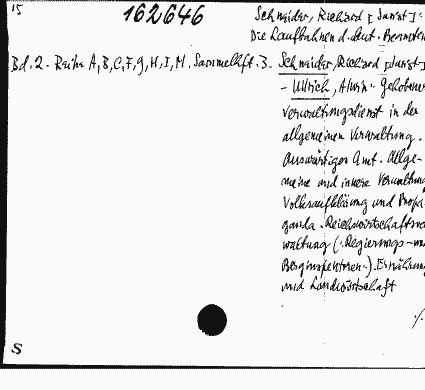 15
162646
Schneider, Richard [Jurist]:
Die Laufbahnen d. deut. Beamten
Bd. 2. Reihe A, B, C, F, G, H, I, M. Sammelhft. 3. Schneider, Richard [Jurist]
- Ullrich, Alwin: Gehobener
Verwaltungsdienst in der
allgemeinen Verwaltung.
Auswärtiges Amt. Allge-
meine und innere Verwaltung
Volksaufklärung und Propa-
ganda. Reichswirtschaftsver-
waltung (: Regierungs- und
Berginspektoren:). Ernährung
und Landwirtschaft
./.
S